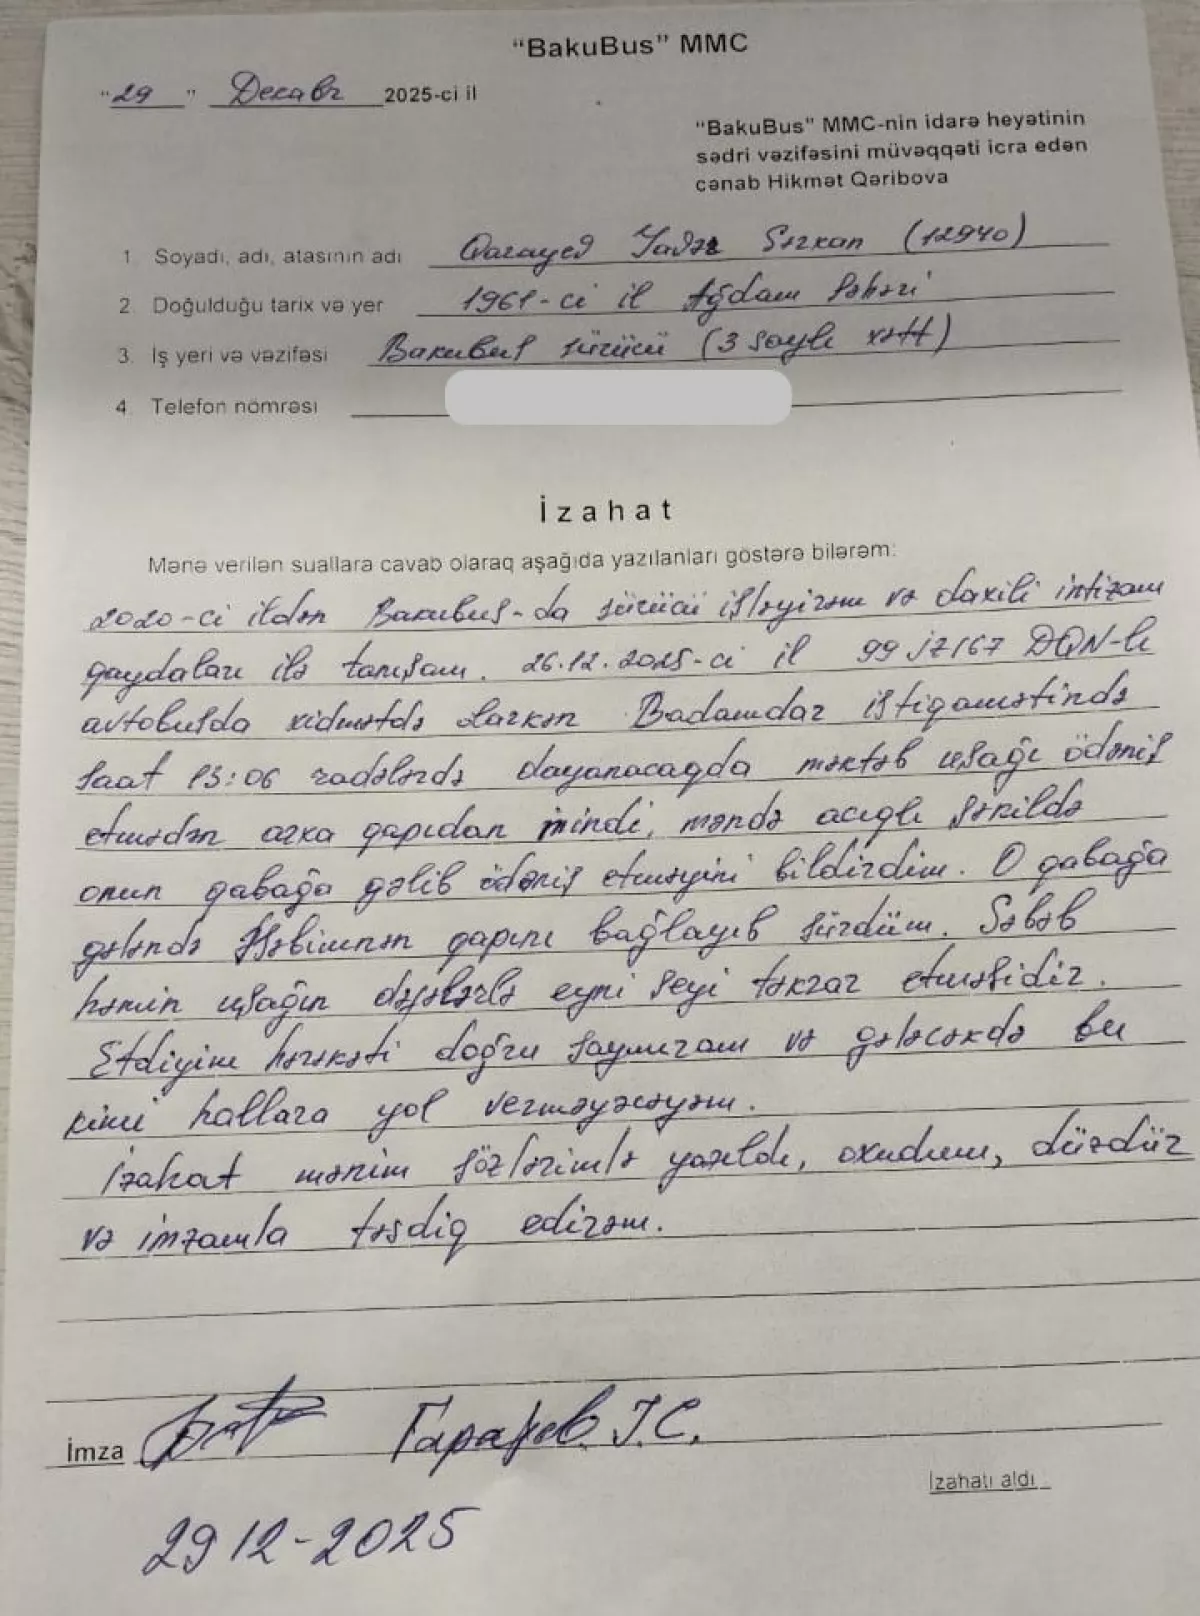 "BakuBus" MMC
"29" Декабр 2025-ci il
"BakuBus" MMC-nin idarə heyətinin
sədri vəzifəsini müvəqqəti icra edən
cənab Hikmət Qəribova
1. Soyadı, adı, atasının adı Qarayev Sərxan (12940)
2. Doğulduğu tarix və yer 1961-ci il Ağdam şəhəri
3. İş yeri və vəzifəsi Bakubus sürücü (3 saylı xətt)
4. Telefon nömrəsi
İzahat
Mənə verilən suallara cavab olaraq aşağıda yazılanları göstərə bilərəm:
2020-ci ildən Bakubus-da sürücü işləyirəm və daxili intizam
qaydaları ilə tanışam. 26.12.2025-ci il 99 JZ 167 DQN-li
avtobusda xidmətdə olarkən Badamdar istiqamətində
saat 13:06 radələrdə dayanacaqda məktəb uşağı ödəniş
etmədən arxa qapıdan mindi, məndə acıqlı şəkildə
onun qabağa gəlib ödəniş etməyini bildirdim. O qabağa
gələndə əsəbimnən qapını bağlayıb sürdüm. Səbəb
həmin uşağın dəfələrlə eyni şeyi təkrar etməsidir.
Etdiyim hərəkəti doğru saymıram və gələcəkdə bu
kimi hallara yol verməyəcəyəm.
İzahat mənim sözlərimlə yazıldı, oxudum, düzdür
və imzamla təsdiq edirəm.
İmza Гараев. Ј.С.
İzahatı aldı
29 12-2025